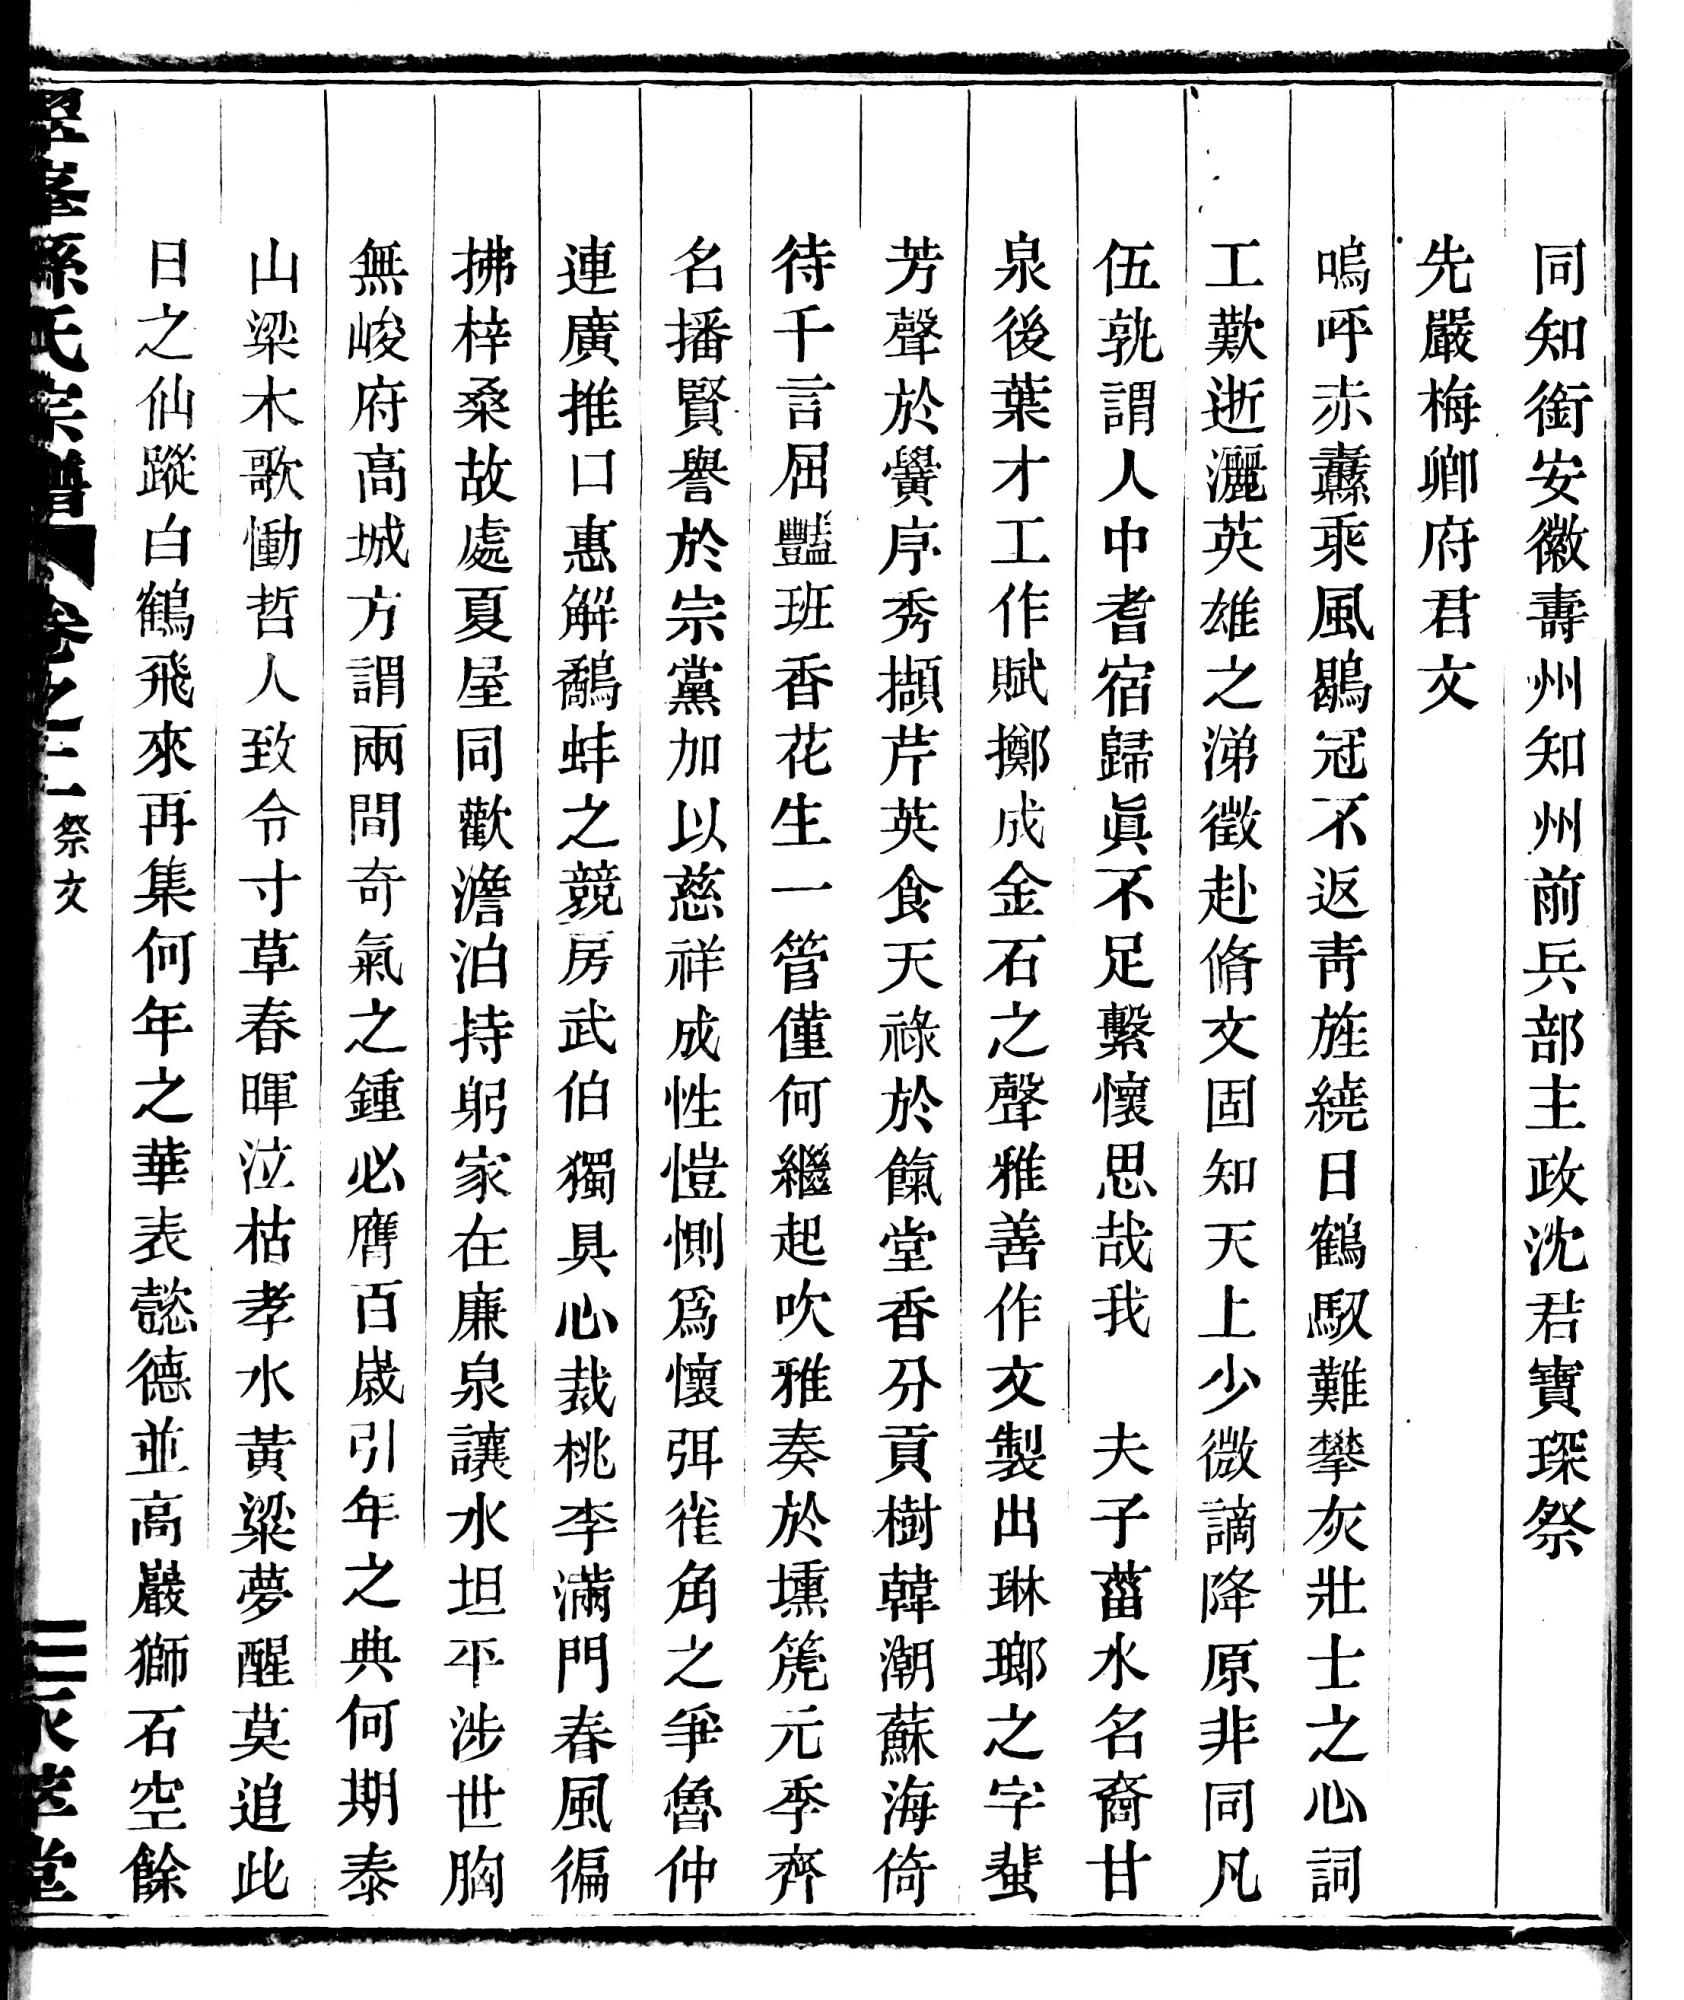 同知銜安徽壽州知州前兵部主政沈君寶琛祭
先嚴梅卿府君文
嗚呼赤驫乘風鶡冠不返青旌繞日鶴馭難攀灰壯士之心詞
工歎逝灑英雄之涕徵赴脩文固知天上少微謫降原非同凡
伍孰謂人中耆宿歸眞不足繫懷思哉我 夫子菑水名裔甘
泉後葉才工作賦擲成金石之聲雅善作文製出琳瑯之字蜚
芳聲於黌序秀擷芹英食天祿於餼堂香分貢樹韓潮蘇海倚
待千言屈豔班香花生一管僅何繼起吹雅奏於壎篪元季齊
名播賢譽於宗黨加以慈祥成性愷惻爲懷弭雀角之爭魯仲
連廣推口惠解鷸蚌之競房武伯獨具心裁桃李滿門春風徧
拂梓桑故處夏屋同歡澹泊持躬家在廉泉讓水坦平涉世胸
無峻府高城方謂兩間奇氣之鍾必膺百歲引年之典何期泰
山梁木歌慟哲人致令寸草春暉泣枯孝水黃粱夢醒莫追此
日之仙蹤白鶴飛來再集何年之華表懿德並高巖獅石空餘
孫氏宗譜 卷之三 祭文 二 永萃堂